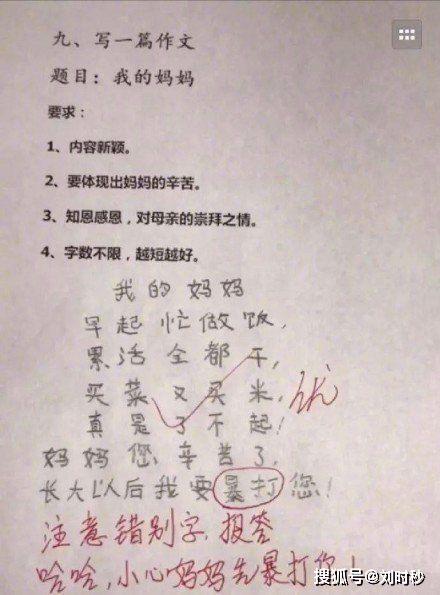 九、写一篇作文
题目：我的妈妈
要求：
1、内容新颖。
2、要体现出妈妈的辛苦。
3、知恩感恩，对母亲的崇拜之情。
4、字数不限，越短越好。
我的妈妈
早起忙做饭，
累活全都干，
买菜又买米，
优
真是了不起！
妈妈您辛苦了，
长大以后我要暴打您！
注意错别字，报答
哈哈，小心妈妈先暴打你！
搜狐号@刘时秒